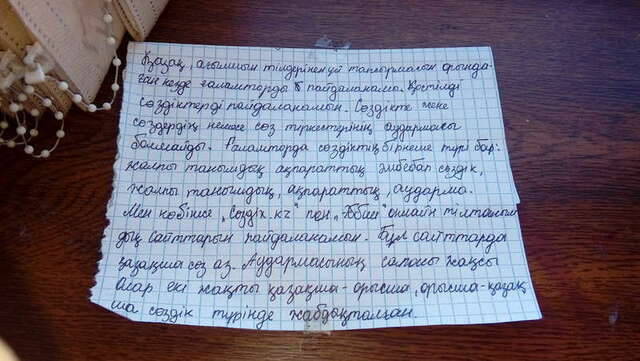 Қазақ, ағылшын тілдерінен үй тапсырмасын орында-
ған кезде ғаламторды пайдаланамын. Қостілді
сөздіктерді пайдаланамын. Сөздікте жеке
сөздердің немесе сөз тіркестерінің аудармасы
болмайды. Ғаламторда сөздіктің бірнеше түрі бар:
жалпы танымдық ақпараттық әмбебап сөздік,
жалпы танымдық, ақпараттық, аударма.
Мен көбінше „Создік.кz" пен онлайн
дық сайттарын пайдаланамын. Бұл сайттарда
қазақша сөз аз. Аудармасының сапасы жақсы
Олар екі жақты қазақша-орысша, орысша-қазақ
ша сөздік түрінде жабдықталған.